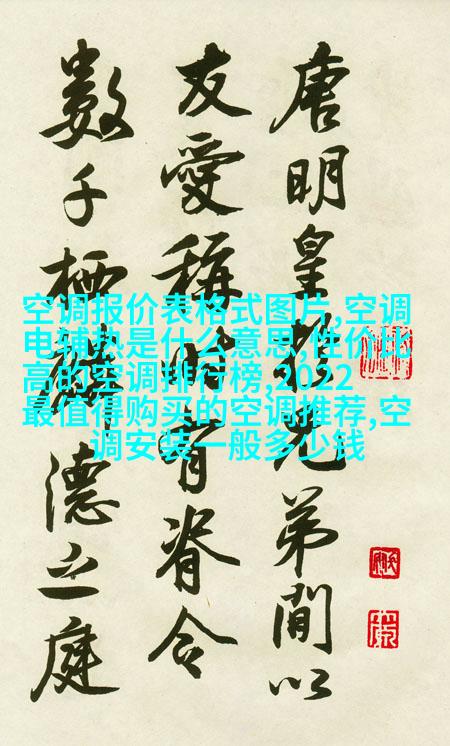 唐明皇於兄弟間以
友愛稱時有脊令
數千栖麟德之庭
空调报价表格式图片,空调
电辅热是什么意思,性价比
高的空调排行榜,2022
最值得购买的空调推荐,空
调安装一般多少钱